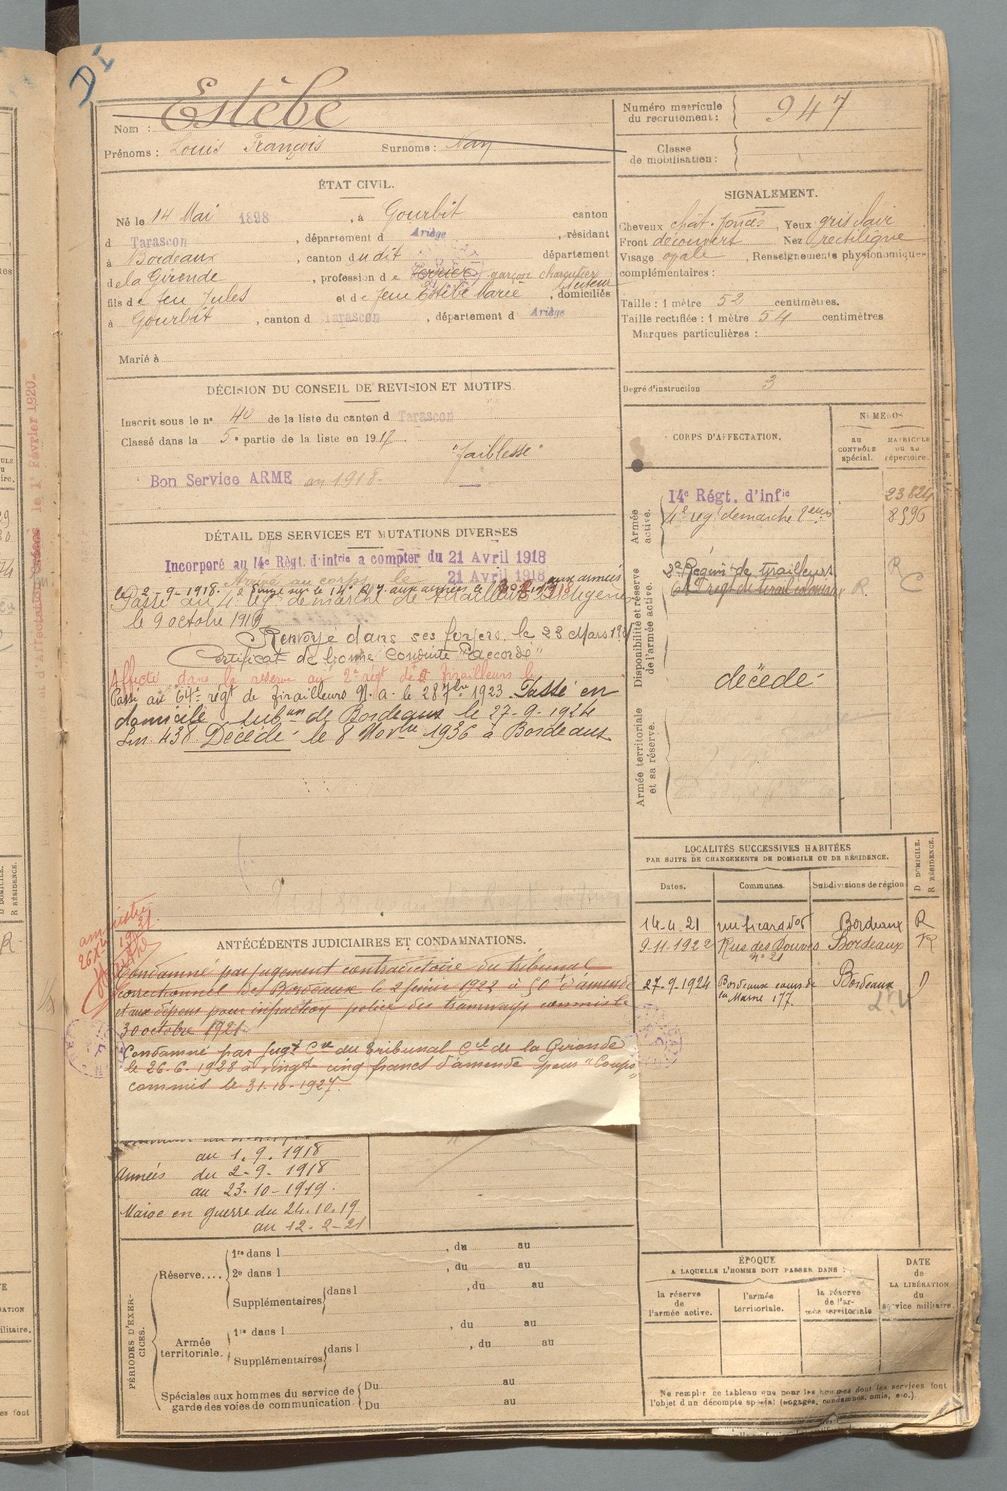 DI
Nom : Estèbe
Prénoms : Louis François Surnoms : Nay
Numéro matricule du recrutement : 947
Classe de mobilisation :
ÉTAT CIVIL.
Né le 14 Mai 1898, à Gourbit canton
d Tarascon, département d Ariège, résidant
à Bordeaux, canton dudit département
de la Gironde, profession de garçon charcutier
fils de feu Jules et de feue Estèbe Marie, domiciliés
à Gourbit, canton d Tarascon, département d Ariège
Marié à
SIGNALEMENT.
Cheveux chat. foncés, Yeux gris clair
Front découvert Nez rectiligne
Visage ovale, Renseignements physionomiques
complémentaires :
Taille : 1 mètre 52 centimètres.
Taille rectifiée : 1 mètre 54 centimètres
Marques particulières :
Degré d'instruction 3
DÉCISION DU CONSEIL DE REVISION ET MOTIFS.
Inscrit sous le nº 40 de la liste du canton d Tarascon
Classé dans la 5e partie de la liste en 1917.
"Faiblesse"
Bon Service ARME en 1918.
CORPS D'AFFECTATION.
NUMÉROS
AU CONTRÔLE spécial.
MATRICULE OU AU répertoire.
Armée active.
14e Régt. d'Infie 23824
4e rég. de marche 8596
Disponibilité et réserve de l'armée active.
2e Régim. de Tirailleurs R
R. C
décédé.
Armée territoriale et sa réserve.
DÉTAIL DES SERVICES ET MUTATIONS DIVERSES
Incorporé au 14e Régt. d'infrie a compter du 21 Avril 1918
Arrivé au corps le 21 Avril 1918
le 2-9-1918. aux armées
Passé au 4e rég. de marche de tirailleurs indigènes
le 9 octobre 1919
Renvoyé dans ses foyers le 23 Mars 1921
Certificat de bonne conduite "Accordé"
Affecté dans la réserve au 2e régt de tirailleurs le
Passé au 64e régt de tirailleurs N.a. le 28 7bre 1923 Passé en
domicile subon de Bordeaux le 27-9-1924
Décédé le 8 Novbre 1936 à Bordeaux
LOCALITÉS SUCCESSIVES HABITÉES
PAR SUITE DE CHANGEMENTS DE DOMICILE OU DE RÉSIDENCE.
Dates. Communes. Subdivisions de région D DOMICILE. R RÉSIDENCE.
14.4.21 Bordeaux R
9.11.1922 Rue des Douves nº 21 Bordeaux R
27-9-1924 Bordeaux cours de la Marne 177. Bordeaux D
ANTÉCÉDENTS JUDICIAIRES ET CONDAMNATIONS.
Condamné par jugement contradictoire du tribunal
correctionnel de Bordeaux le 2 février 1922 à 50f d'amende
et aux dépens pour infraction police des tramways commise
30 octobre 1921
Condamné par jugt Cre du tribunal Cel de la Gironde
le 26.6.1928 à vingt-cinq francs d'amende pour "Coups"
commis le 31.10.1927.
au 1.9.1918
Armées du 2-9-1918
au 23-10-1919.
Maroc en guerre du 24.10.19
au 12-2-21
PÉRIODES D'EXERCICES.
Réserve....
1re dans l , du au
2e dans l , du au
Supplémentaires dans l , du au
Armée territoriale.
1re dans l , du au
Supplémentaires dans l , du au
Spéciales aux hommes du service de garde des voies de communication.
Du au
Du au
ÉPOQUE
A LAQUELLE L'HOMME DOIT PASSER DANS :
la réserve de l'armée active.
l'armée territoriale.
la réserve de l'armée territoriale
DATE de LA LIBÉRATION du service militaire.
Ne remplir ce tableau que pour les hommes dont les services font
l'objet d'un décompte spécial (engagés, condamnés, omis, etc.).